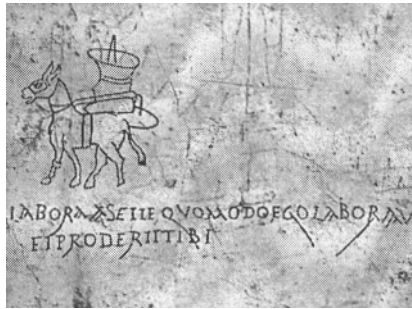 LABORA ASELLE QVOMODO EGO LABORAV
ET PRODERIT TIBI